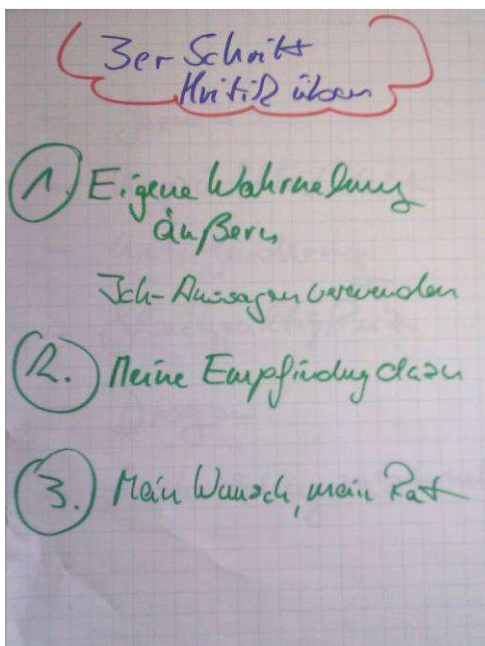 3er Schritt
Kritik üben
1. Eigene Wahrnehmung
äußern
Ich-Aussagen verwenden
2. Meine Empfindung dazu
3. Mein Wunsch, mein Rat